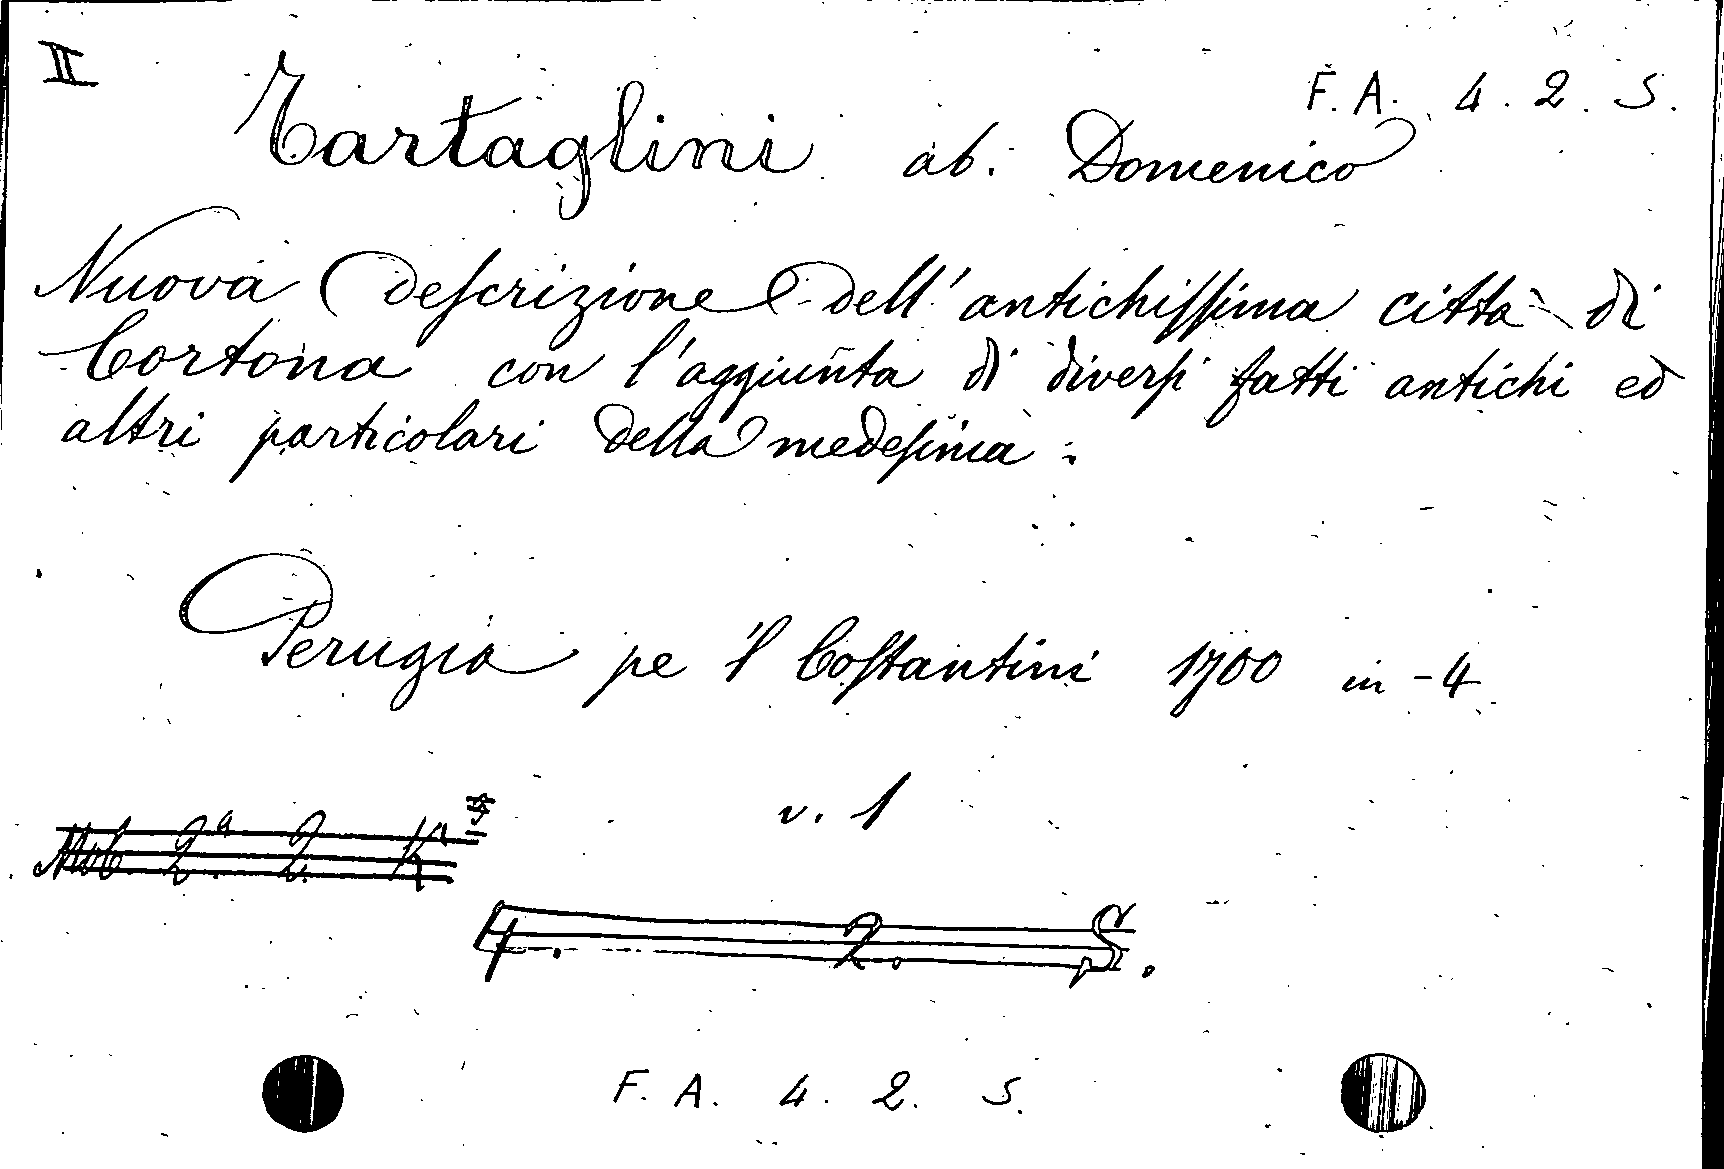 II
F. A. 4. 2. S.
Tartaglini ab. Domenico
Nuova Deſcrizione dell' antichiſſima città di
Cortona con l'aggiunta di diverſi fatti antichi ed
altri particolari della medeſima.
Perugia pe il Coſtantini 1700 in-4
v. 1
2ª. 2.
4. 2. S.
F. A. 4. 2. S.